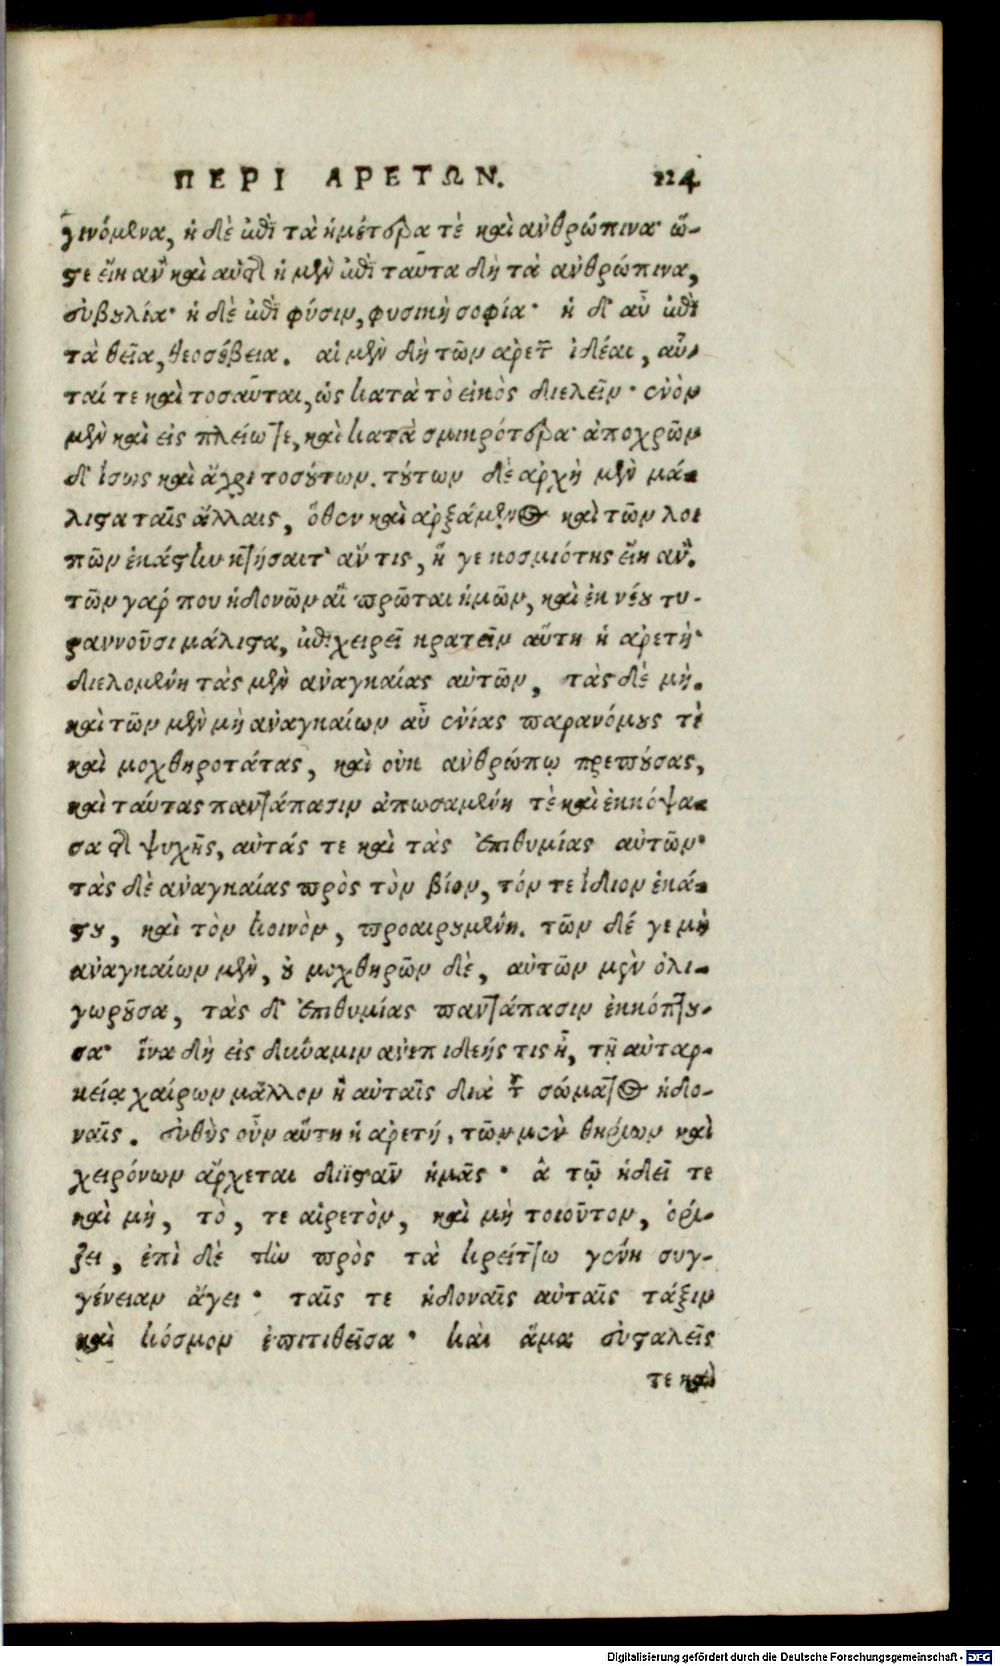 ΠΕΡΙ ΑΡΕΤΩΝ. 124
γινόμενα, ἡ δὲ ἐπὶ τὰ ἡμέτερα τὲ καὶ ἀνθρώπινα· ὥ-
στε εἴη ἂν καὶ αὐτῆς ἡ μὲν ἐπὶ ταῦτα δὴ τὰ ἀνθρώπινα,
εὐβουλία· ἡ δὲ ἐπὶ φύσιν, φυσικὴ σοφία· ἡ δ' αὖ ἐπὶ
τὰ θεῖα, θεοσέβεια. αἱ μὲν δὴ τῶν ἀρετῶν ἰδέαι, αὗ-
ταί τε καὶ τοσαῦται, ὡς κατὰ τὸ εἰκὸς διελεῖν· ἐνὸν
μὲν καὶ εἰς πλείω τε, καὶ κατὰ σμικρότερα· ἀποχρῶν
δ' ἴσως καὶ ἄχρι τοσούτων. τούτων δὲ ἀρχὴ μὲν μά-
λιστα ταῖς ἄλλαις, ὅθεν καὶ ἀρξάμενος καὶ τῶν λοι
πῶν ἑκάστην κτήσαιτ' ἄν τις, ἥ γε κοσμιότης εἴη ἄν.
τῶν γάρ που ἡδονῶν αἳ πρῶται ἡμῶν, καὶ ἐκ νέου τυ-
ραννοῦσι μάλιστα, ἐπιχειρεῖ κρατεῖν αὕτη ἡ ἀρετή·
διελομένη τὰς μὲν ἀναγκαίας αὐτῶν, τὰς δὲ μή.
καὶ τῶν μὲν μὴ ἀναγκαίων αὖ ἐνίας παρανόμους τὲ
καὶ μοχθηροτάτας, καὶ οὐκ ἀνθρώπῳ πρεπούσας,
καὶ ταύτας παντάπασιν ἀπωσαμένη τὲ καὶ ἐκκόψα-
σα τῆς ψυχῆς, αὐτάς τε καὶ τὰς ἐπιθυμίας αὐτῶν·
τὰς δὲ ἀναγκαίας πρὸς τὸν βίον, τόν τε ἴδιον ἑκά-
στου, καὶ τὸν κοινὸν, προαιρουμένη. τῶν δέ γε μὴ
ἀναγκαίων μὲν, οὐ μοχθηρῶν δὲ, αὐτῶν μὲν ὀλι-
γωροῦσα, τὰς δ' ἐπιθυμίας παντάπασιν ἐκκόπτου-
σα· ἵνα δὴ εἰς δύναμιν ἀνεπιδεής τις ᾖ, τῇ αὐταρ-
κείᾳ χαίρων μᾶλλον ἢ αὐταῖς διὰ τοῦ σώματος ἡδο-
ναῖς. εὐθὺς οὖν αὕτη ἡ ἀρετή, τῶν μὲν θηρίων καὶ
χειρόνων ἄρχεται διϊστᾶν ἡμᾶς· ἃ τῷ ἡδεῖ τε
καὶ μὴ, τὸ, τε αἱρετὸν, καὶ μὴ τοιοῦτον, ὁρί-
ζει, ἐπὶ δὲ τὴν πρὸς τὰ κρείττω γένη συγ-
γένειαν ἄγει· ταῖς τε ἡδοναῖς αὐταῖς τάξιν
καὶ κόσμον ἐπιτιθεῖσα· καὶ ἅμα εὐσταλεῖς
τε καὶ
Digitalisierung gefördert durch die Deutsche Forschungsgemeinschaft - DFG